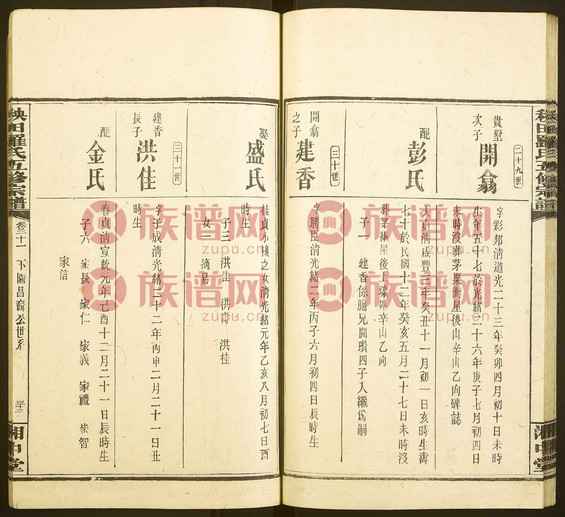 秧田羅氏五修宗譜
湘中堂
二十九世
貴墅
次子
開翕
字彩邦清道光二十三年癸卯四月初十日未時
生年五十七於光緒二十六年庚子七月初四日
未時沒葬茅菓衝屋後山辛山乙向碑誌
配
彭氏
大貞清咸豐三年癸丑十一月初一日亥時生壽
七十於民國十二年癸亥五月二十七日未時沒
葬茅菓衝屋後山辛山乙向
子一 建香
三十世
開翕
之子
建香
字勝臣清光緒二年丙子六月初四日辰時生
娶
盛氏
桂貞小樓之女清光緒元年乙亥八月初七日酉
時生
子三 洪佳 洪 洪桂
女一 適易
三十一世
建香
長子
洪佳
字子成清光緒二十二年丙申二月二十一日丑
時生
配
金氏
春貞清宣統元年己酉十二月二十一日辰時生
子六 家長 家仁 家義 家禮 家智
家信
秧田羅氏五修宗譜
卷二十一
下園昌裔公世系
湘中堂
族谱网
zupu.cn